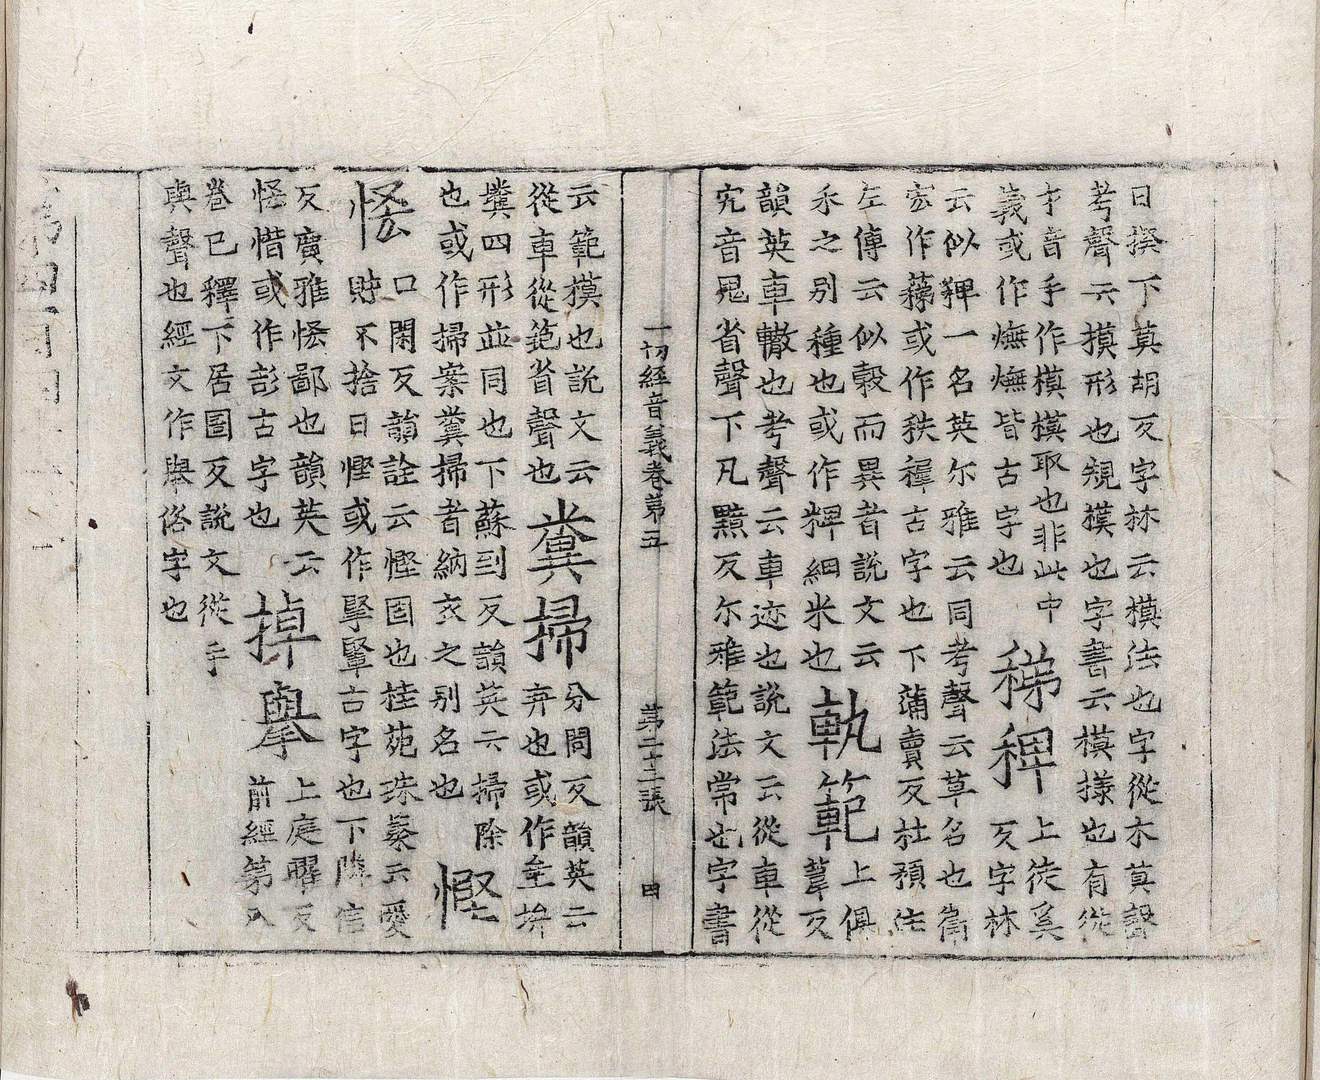 曰揆下莫胡反字林云模法也字從木莫聲
考聲云摸形也規模也字書云模㨾也有從
才音手作模模取也非此中
義或作㷻㷻皆古字也
稊稗
上徒奚
反字林
云似稗一名英尒雅云同考聲云草名也衛
宏作蕛或作秩稺古字也下蒲賣反杜預注
左傳云似穀而異者說文云
禾之別種也或作粺細米也
軌範
上俱
葦反
韻英車轍也考聲云車迹也說文云從車從
宄音晷省聲下凡黯反尒雅範法常也字書
一切經音義卷第五 第二十二張 四
云範模也說文云
從車從笵省聲也
糞掃
分問反韻英云
弃也或作𡊅坋
𡑆四形並同也下蘇到反韻英云掃除
也或作埽案糞掃者納衣之別名也
慳
悋
口閑反韻詮云慳固也桂苑珠藂云愛
財不捨曰慳或作掔㹂古字也下隣信
反廣雅悋鄙也韻英云
悋惜或作㖁古字也
掉
擧
上庭曜反
前經第八
卷已釋下居圄反說文從手
與聲也經文作舉俗字也